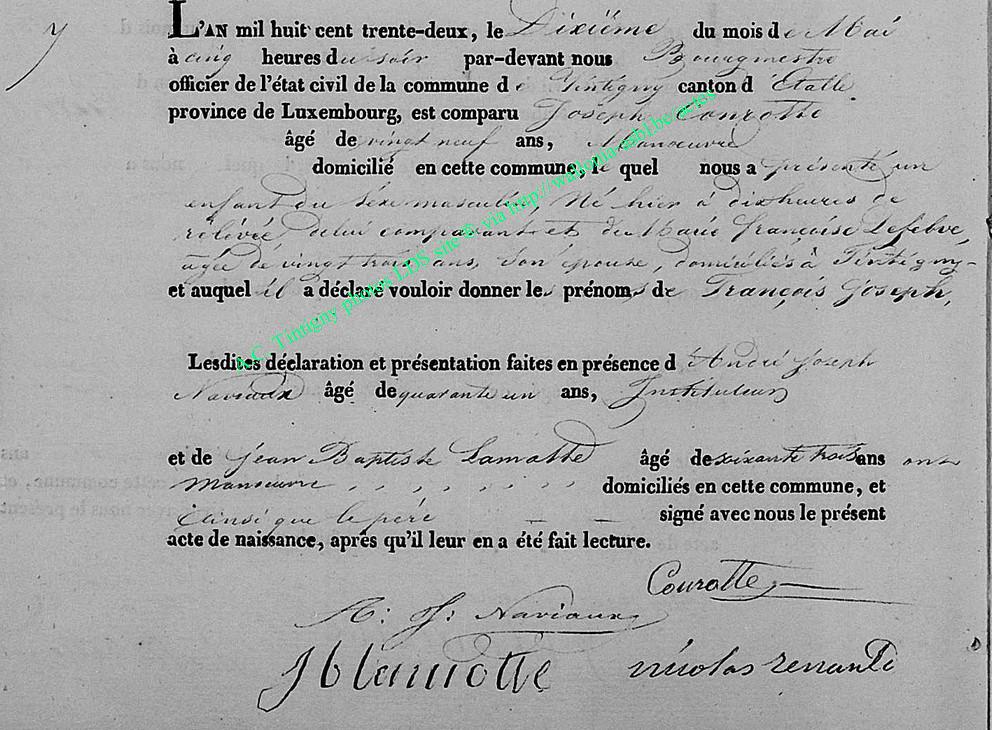 y
L'AN mil huit cent trente-deux, le Dixième du mois de Mai
à cinq heures du soir par-devant nous Bourgmestre
officier de l'état civil de la commune de Tintigny canton d'Etalle
province de Luxembourg, est comparu Joseph Courotte
âgé de vingt neuf ans, Manœuvre
domicilié en cette commune, le quel nous a présenté un
enfant du sexe masculin, Né hier à dix heures de
rélévée, delui comparant et de Marie françoise Lefebve,
agée de vingt trois ans, son épouse, domiciliés à Tintigny-
et auquel il a déclaré vouloir donner les prénoms de François Joseph,
Lesdites déclaration et présentation faites en présence d'André Joseph
Naviaux âgé de quarante un ans, Instituteur
et de Jean Baptiste Lamotte âgé de soixante trois ans ont
manœuvre domiciliés en cette commune, et
ainsi que le père signé avec nous le présent
acte de naissance, après qu'il leur en a été fait lecture.
Courotte
A: J: Naviaux
J b lamotte nicolas renauld
A.C. Tintigny photos LDS site © via http://wallonia-asbl.be actes